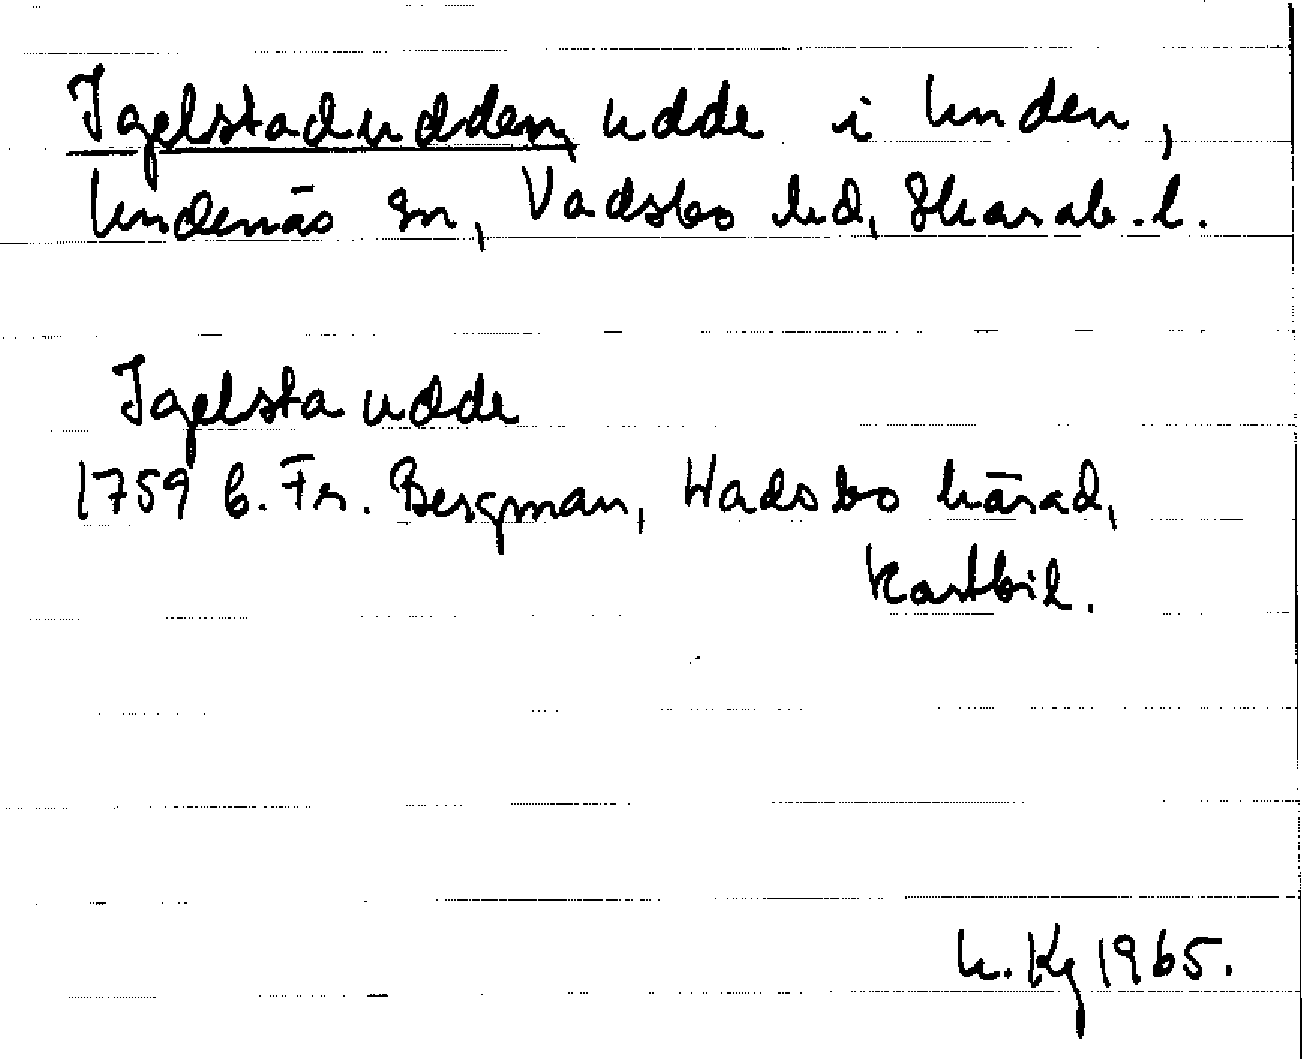 Igelstadudden, udde i Unden,
Undenäs sn, Vadsbo hd, Skarab. l.
Igelsta udde
1759 B. Fr. Bergman, Wadsbo härad,
kartbil.
U. Kg 1965.